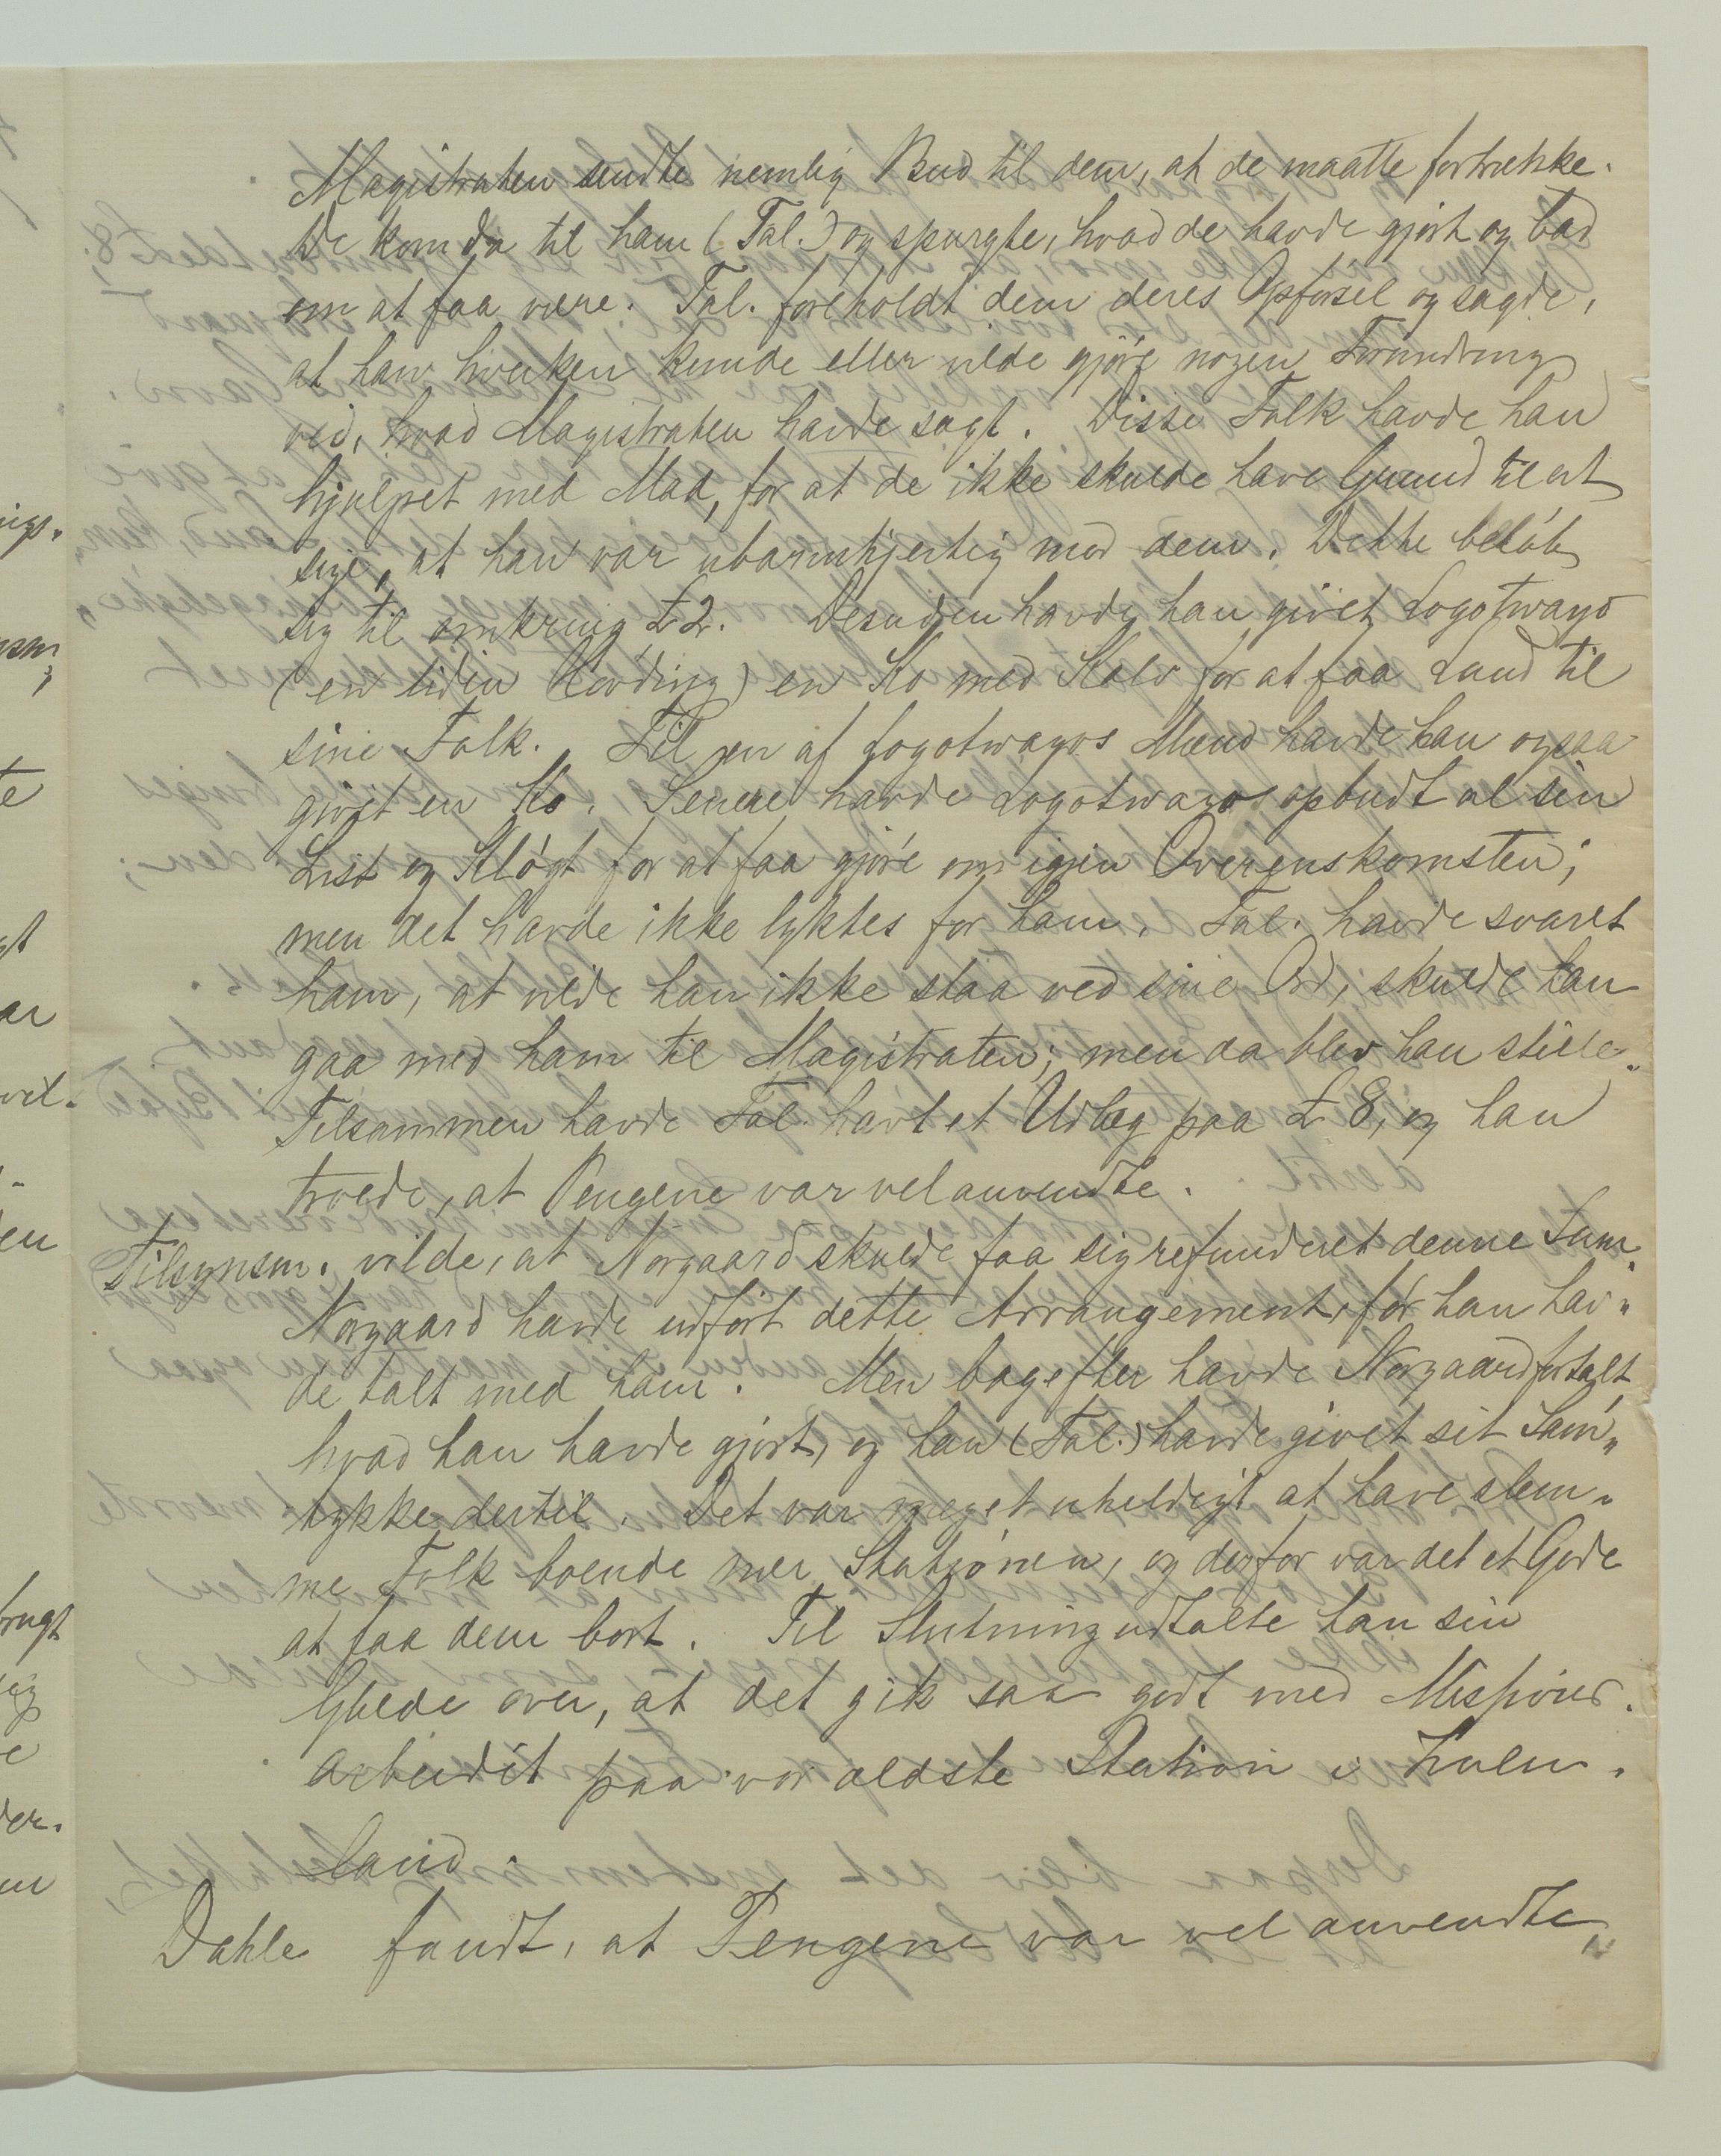 Magistraten sendte nemlig Bud til dem, at de maatte fortrække.
De kom da til ham (Tal.) og spurgte, hvad de havde gjort og bad
om at faa være. Tal. foreholdt dem deres Opførsel og sagde,
at han hverken kunde eller vilde gjøre nogen Forandring
ved, hvad Magistraten havde sagt. Disse Folk havde han
hjulpet med Mad, for at de ikke skulde have Grund til at
sige, at han var ubarmhjertig mod dem. Dette beløb
sig til omkring £2. Desuden havde han givet Logotwayo
(en liden Høvding) en Ko med Kalv for at faa Land til
sine Folk. Til en af Logotwayos Mænd havde han ogsaa
givet en Ko. Senere havde Logotwayo opbudt al sin
List og Kløgt for at faa gjøre om igjen Overenskomsten;
men det havde ikke lyktes for ham. Tal. havde svaret
ham, at vilde han ikke staa ved sine Ord, skulde han
gaa med ham til Magistraten; men da blev han stille.
Tilsammen havde Tal. havt et Udlæg paa £8, og han
troede, at Pengene var vel anvendte.
Tilsynsm. vilde, at Norgaard skulde faa sig refunderet denne Sum.
Norgaard havde udført dette Arrangement, før han hav-
de talt med ham. Men bagefter havde Norgaard fortalt
hvad han havde gjort, og han (Tal.) havde givet sit Sam-
tykke dertil. Det var meget uheldigt at have slem-
me Folk boende nær Stationen, og derfor var det et Gode
at faa dem bort. Til Slutning udtalte han sin
Glæde over, at det gik saa godt med Missions-
arbeidet paa vor ældste Station i Zulu-
land.
Dahle fandt, at Pengene var vel anvendte,